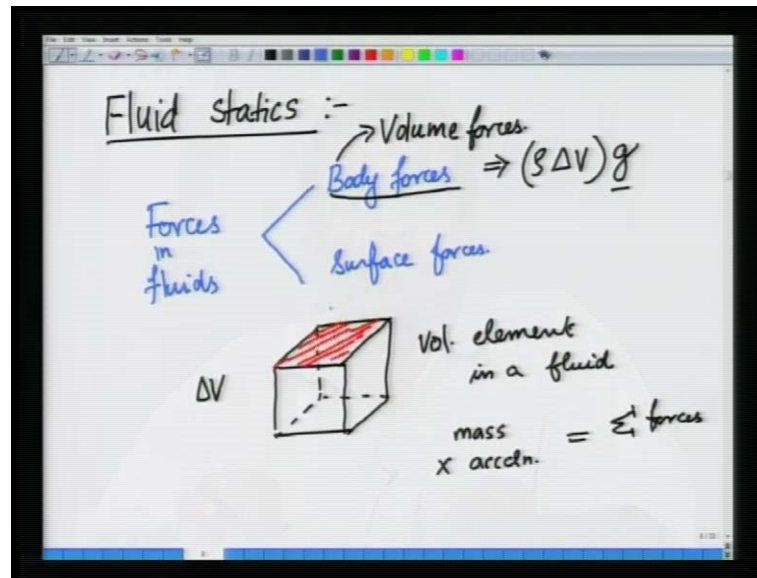 File Edit View Insert Actions Tools Help
Fluid statics :-
Volume forces.
Body forces ⇒ (ρ ΔV) g
Forces
in
fluids
Surface forces.
ΔV
Vol. element
in a fluid
mass
x accdn.
= Σ forces